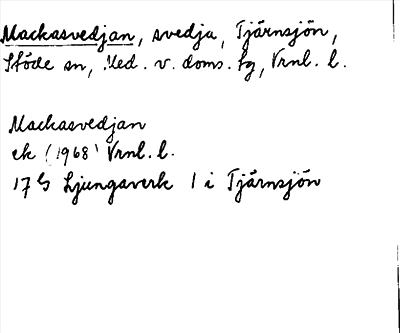 Mackasvedjan, svedja, Tjärnsjön,
Stöde sn, Med. v. doms. tg, Vrnl. l.
Mackasvedjan
ek (1968) Vrnl. l.
17 G Ljungaverk 1 i Tjärnsjön